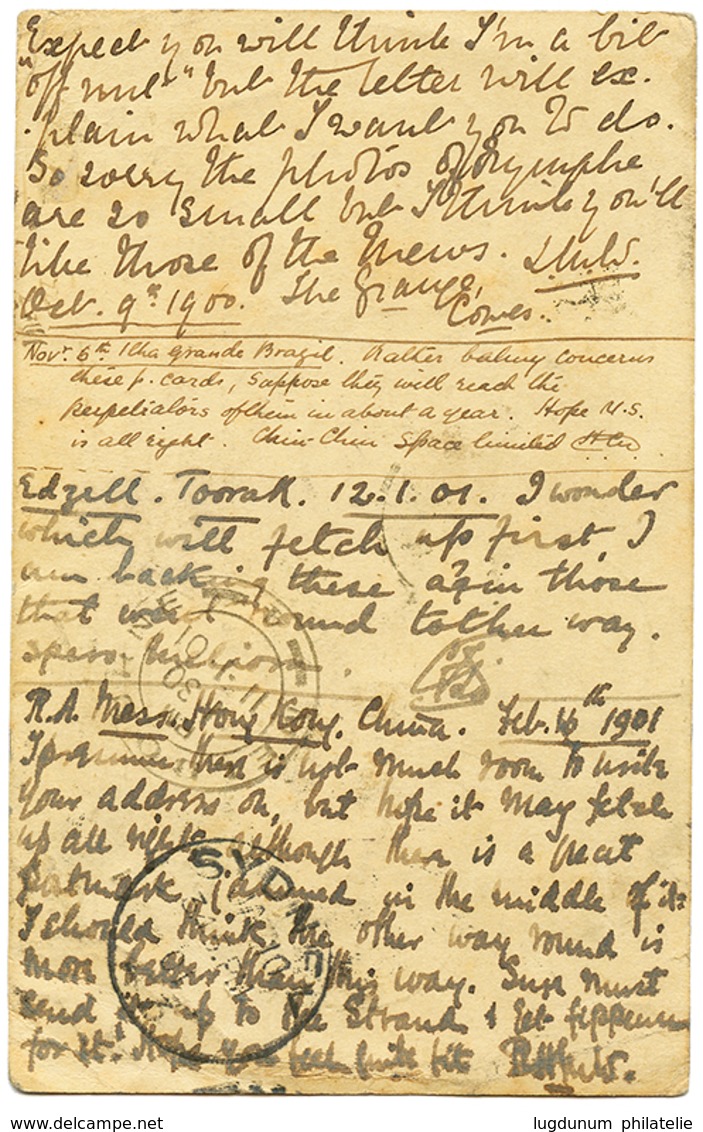 Expect you will think I'm a bit
"off nut" but the letter will ex-
plain what I want you to do.
So sorry the photos of Nymphe
are so small but I think you'll
like those of the Mews.
Oct. 9th 1900. The Grange,
Cowes.
Novr. 6th Ilha Grande Brazil. Rather balmy concerns
these p. cards, Suppose they will reach the
perpetrators of them in about a year. Hope U.S.
is all right. Chin-Chin Space limited
Edzell. Toorak. 12.1.01. I wonder
which will fetch up first, I
am backing these agin those
that went round tother way.
R.A. Mess. Hong Kong. China. Feb. 16th 1901
I presume there is not much room to write
your address on, but hope it may fetch
up all right, although there is a great
postmark jammed in the middle of it.
I should think the other way round is
more better than this way. Susn must
send it up to the Strand & get
for it. Hope you feel quite fit
SYDNEY
delcampe.net
lugdunum philatelie